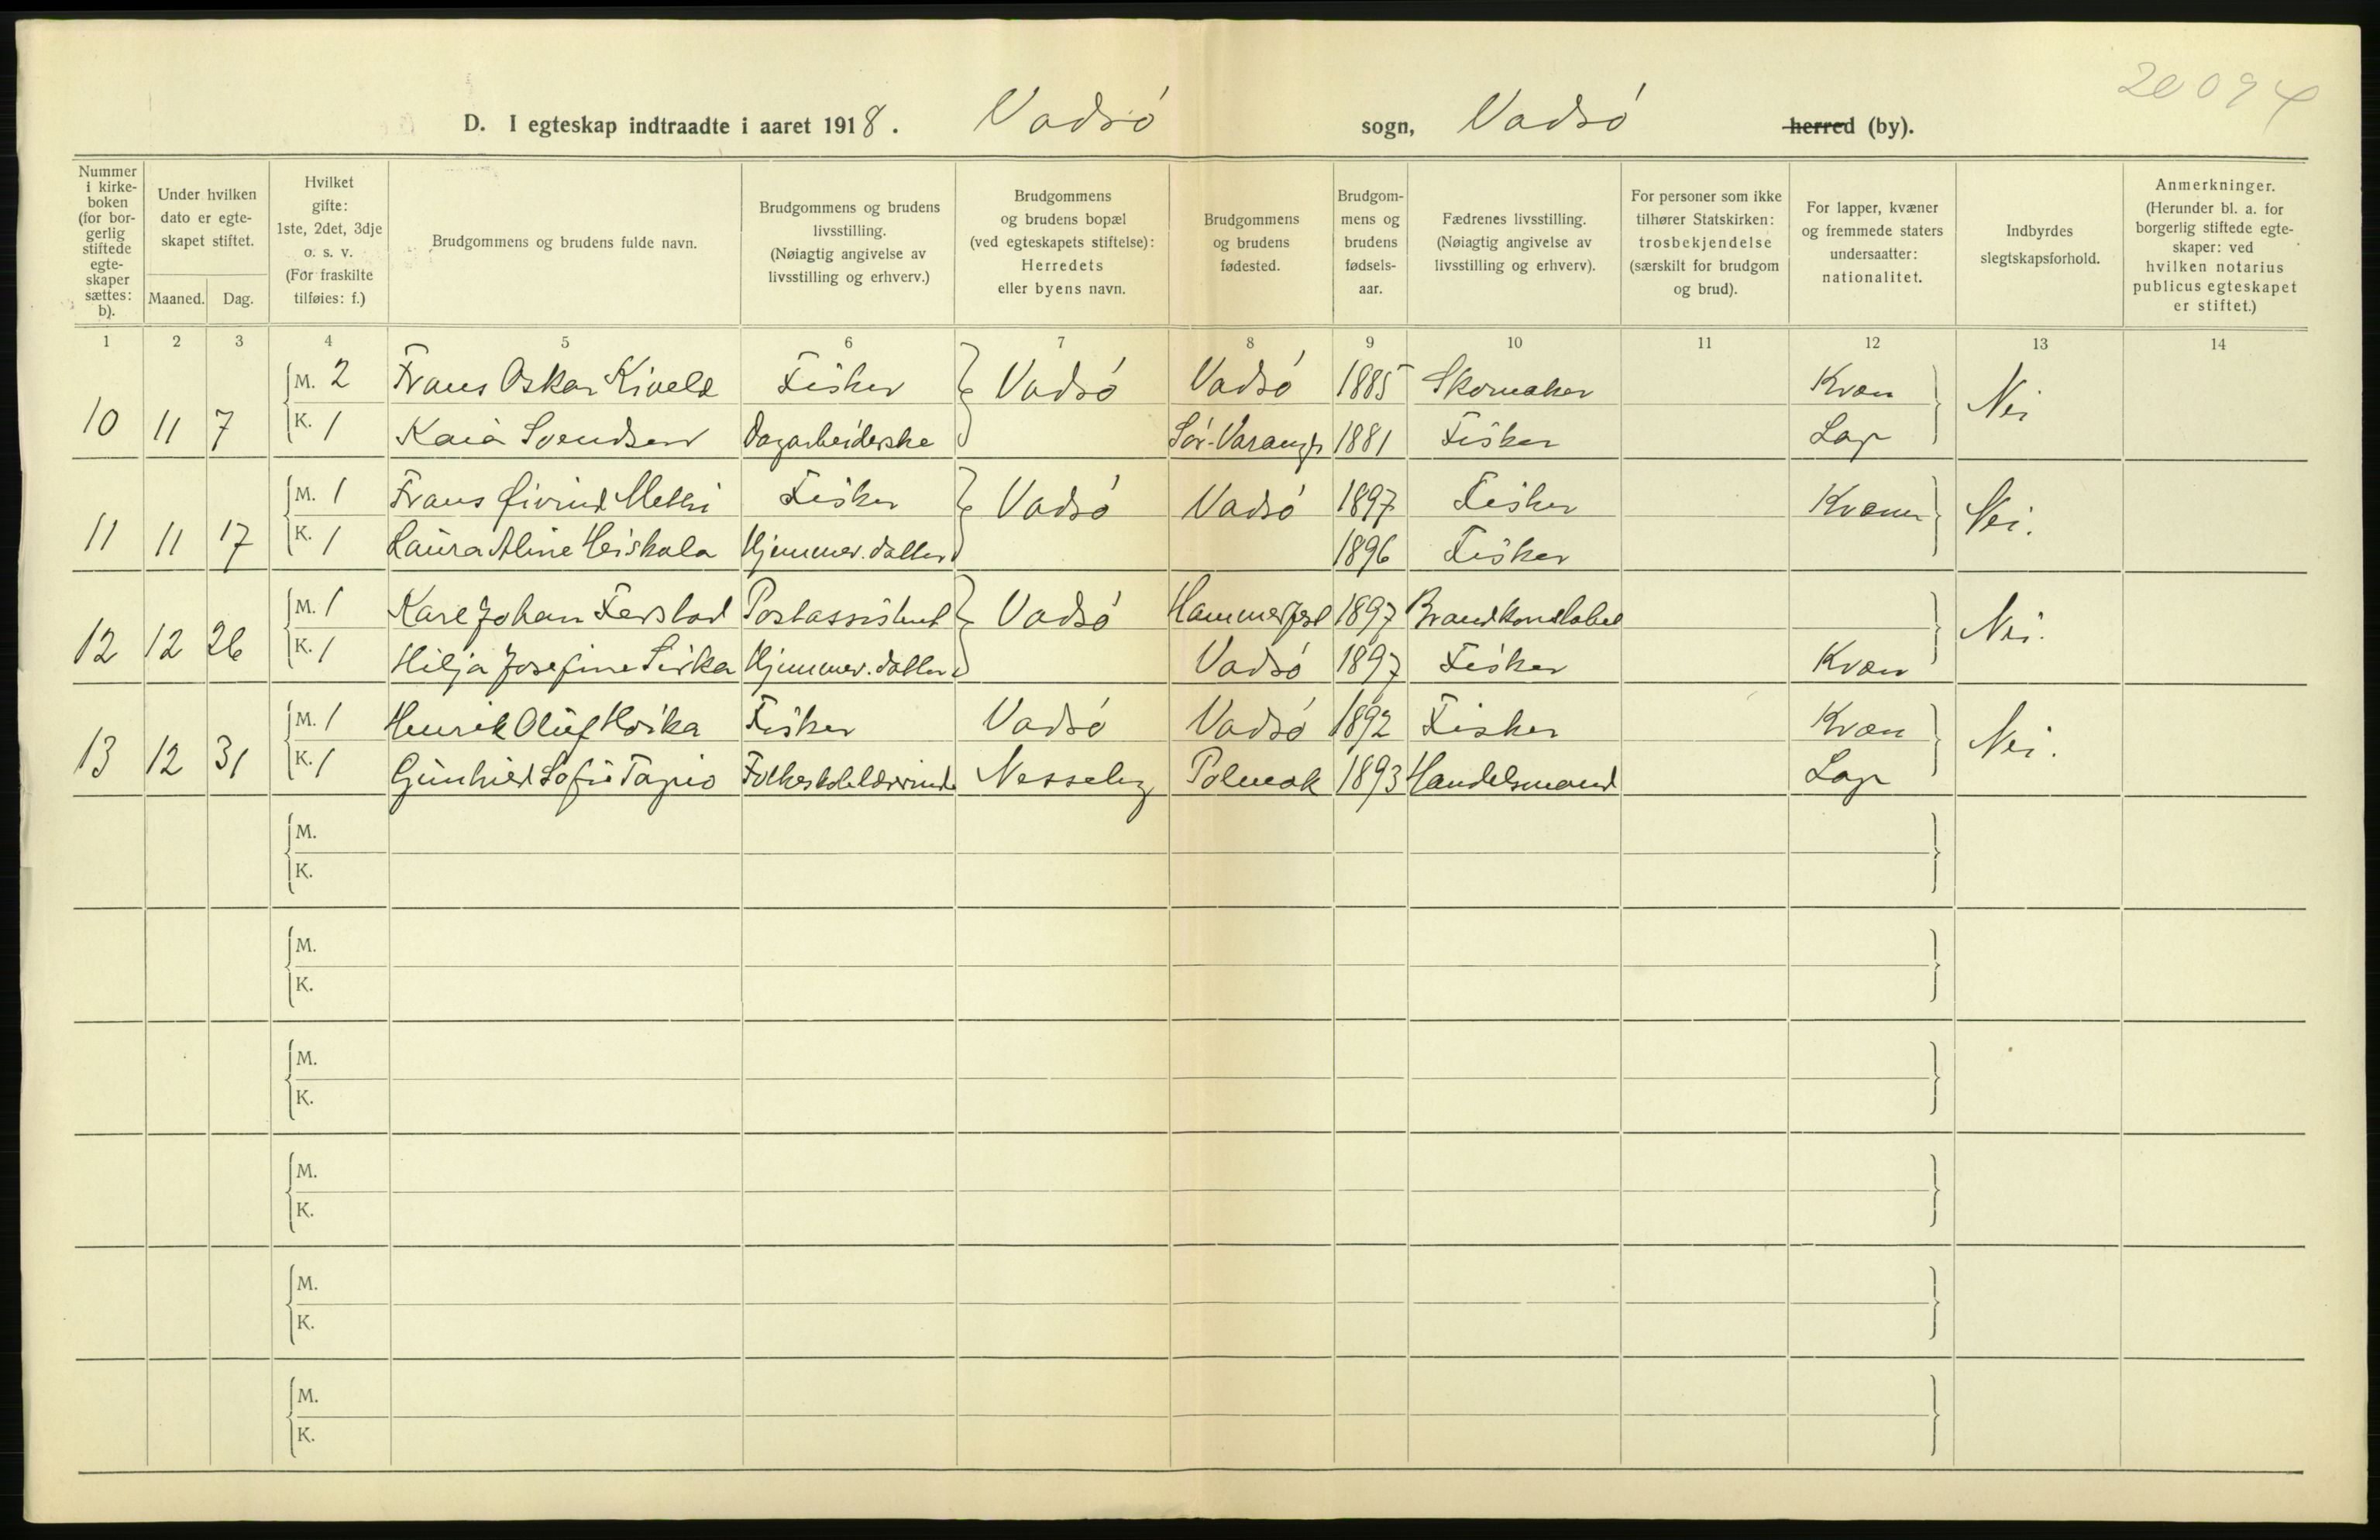 20094
D. I egteskap indtraadte i aaret 1918. Vadsö sogn, Vadsö herred (by).
Nummer i kirkeboken (for borgerlig stiftede egteskaper sættes: b).
Under hvilken dato er egteskapet stiftet.
Maaned. Dag.
Hvilket gifte: 1ste, 2det, 3dje o. s. v. (For fraskilte tilføies: f.)
Brudgommens og brudens fulde navn.
Brudgommens og brudens livsstilling. (Nøiagtig angivelse av livsstilling og erhverv.)
Brudgommens og brudens bopæl (ved egteskapets stiftelse): Herredets eller byens navn.
Brudgommens og brudens fødested.
Brudgommens og brudens fødselsaar.
Fædrenes livsstilling. (Nøiagtig angivelse av livsstilling og erhverv).
For personer som ikke tilhører Statskirken: trosbekjendelse (særskilt for brudgom og brud).
For lapper, kvæner og fremmede staters undersaatter: nationalitet.
Indbyrdes slegtskapsforhold.
Anmerkninger. (Herunder bl. a. for borgerlig stiftede egteskaper: ved hvilken notarius publicus egteskapet er stiftet.)
1 2 3 4 5 6 7 8 9 10 11 12 13 14
M. 2 Frans Oskar Kivelä Fisker Vadsö Vadsö 1885 Skomaker Kvæn Nei
10 11 7 K. 1 Kaia Svendsen Dagarbeiderske Sör-Varanger 1881 Fisker Lap
M. 1 Frans Øivind Methi Fisker Vadsö Vadsö 1897 Fisker Kvæner Nei.
11 11 17 K. 1 Laura Aline Heiskala Hjemmev. datter 1896 Fisker
M. 1 Karl Johan Ferstad Postassistent Vadsö Hammerfest 1897 Brandkonstabel Nei.
12 12 26 K. 1 Hilja Josefine Sirka Hjemmev. datter Vadsö 1897 Fisker Kvæn
M. 1 Henrik Oluf Hoika Fisker Vadsö Vadsö 1892 Fisker Kvæn Nei.
13 12 31 K. 1 Gunhild Sofie Tapio Folkeskolelærerinde Nesseby Polmak 1893 Handelsmand Lap
M.
K.
M.
K.
M.
K.
M.
K.
M.
K.
M.
K.